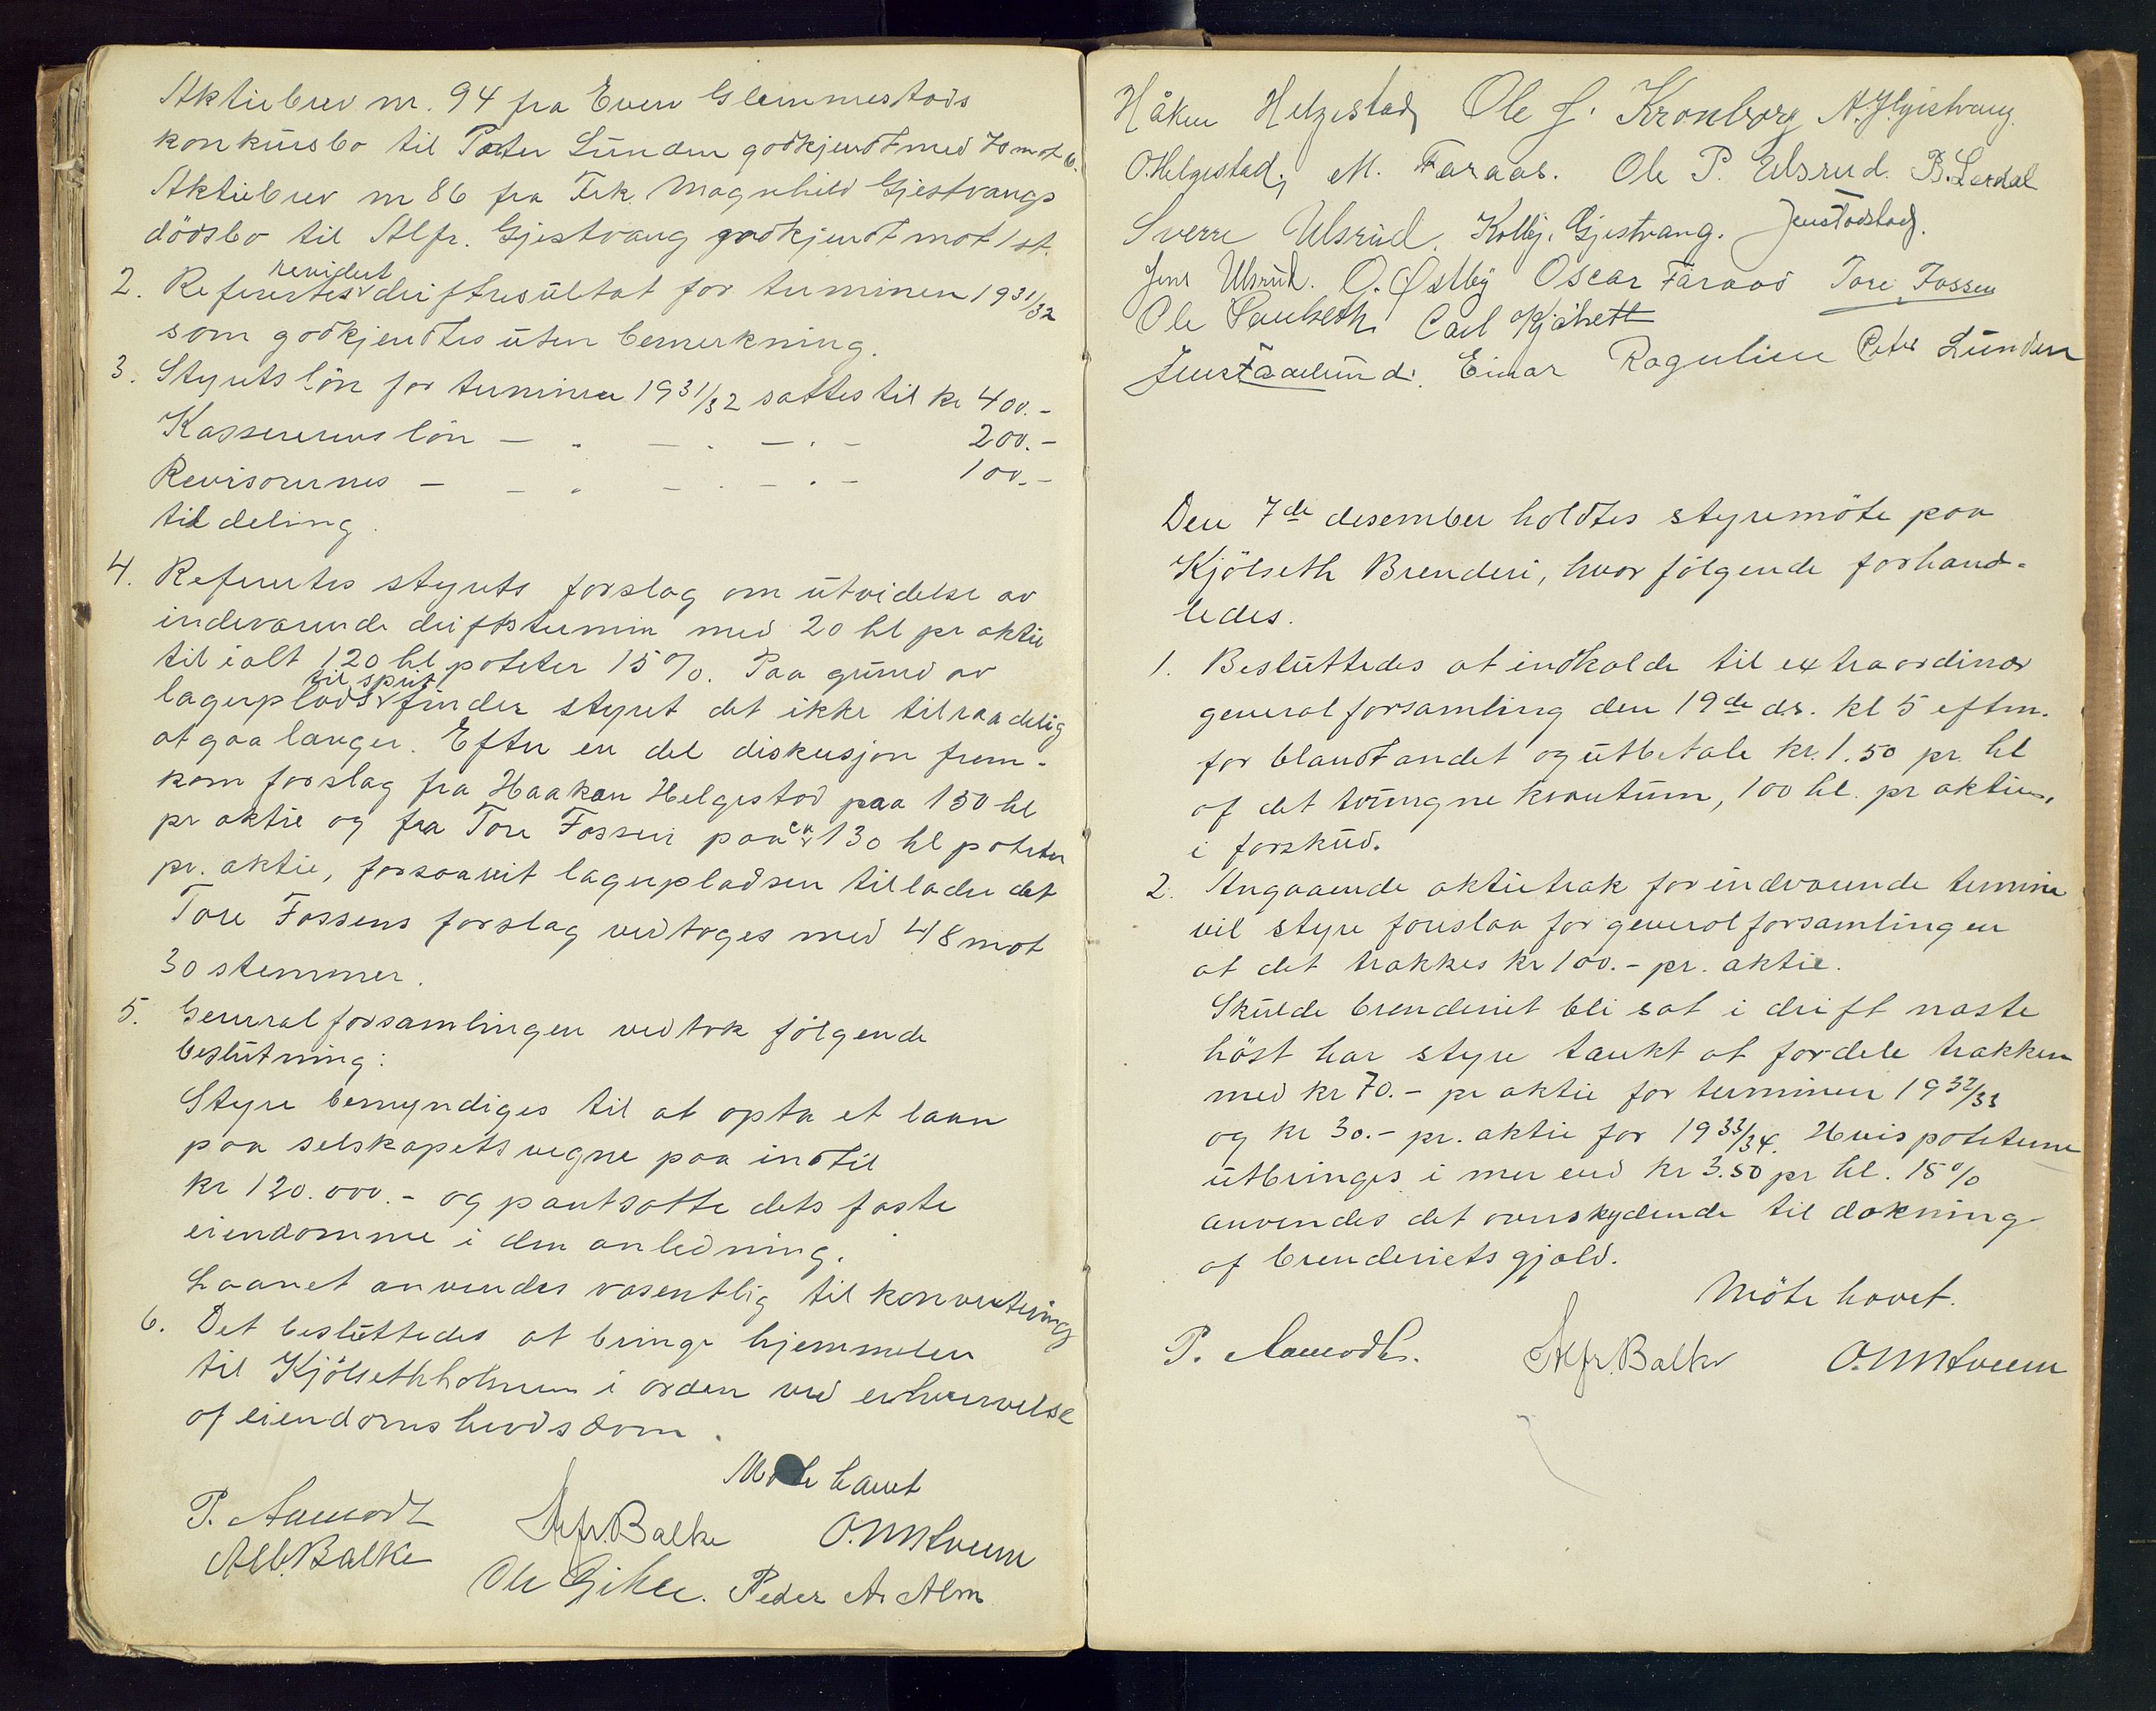 Aktiebrev nr. 94 fra Even Glemmestads
konkursbo til Peter Lunden godkjendt med 70 mot 6.
Aktiebrev nr 86 fra Frk. Magnhild Gjestvangs
dödsbo til Alfr. Gjestvang godkjendt mot 1 st.
2. Refertes revidert driftresultat for terminen 1931/32
som godkjendtes uten bemerkning.
3. Styrets lön for terminen 1931/32 sattes til kr 400.-
Kassererens lön — . — . — . — 200.-
Revisorernes — — . — . — . — 100.-
til deling.
4. Refertes styrets forslag om utvidelse av
indeværende driftstermin med 20 hl pr aktie
til ialt 120 hl poteter 15%. Paa grund av
lagerplads til sprit finder styret det ikke tilraadelig
at gaa længer. Efter en del diskusjon frem-
kom forslag fra Haakon Helgestad paa 150 hl
pr aktie og fra Tore Fossen paa ca 130 hl poteter
pr. aktie, forsaavit lagerpladsen tillader det
Tore Fossens forslag vedtoges med 48 mot
30 stemmer.
5. Generalforsamlingen vedtok fölgende
beslutning:
Styre bemyndiges til at opta et laan
paa selskapets vegne paa indtil
kr 120.000.- og pantsætte dets faste
eiendomme i den anledning.
Laanet anvendes væsentlig til konvertering
6. Det besluttedes at bringe hjemmelen
til Kjölsethholmen i orden ved erhvervelse
af eiendomshævdsdom.
Möte hævet
P. Aamodt Alfr. Balke O. M. Sveum
Alb. Balke Ole Gihle. Peder A. Alm
Håkon Helgestad, Ole J. Kronborg A. H. Gjestvang.
O. Helgestad, M. Faraas. Ole P. Ulsrud. B. Lerdal
Sverre Ulsrud. Kolbj. Gjestvang. Jens Todstad.
Jens Ulsrud. O. Østby Oscar Faraas Tore Fossen
Ole Paulseth Carl Kjölseth
Jens Faalund. Einar Ragulien Peter Lunden
Den 7de desember holdtes styremöte paa
Kjölseth Brenderi, hvor fölgende forhand-
ledes.
1. Besluttedes at indkalde til extraordinær
generalforsamling den 19de ds. kl 5 eftm.
for blandt andet og utbetale kr. 1.50 pr. hl
af det tvungne kvantum, 100 hl. pr aktie,
i forskud.
2. Angaaende aktietræk for indværende termin
vil styre foreslaa for generalforsamlingen
at det trækkes kr 100.- pr. aktie.
Skulde brenderiet bli sat i drift næste
höst har styre tænkt at fordele trækken
med kr 70.- pr aktie for terminen 1932/33
og kr 30.- pr. aktie for 1933/34. Hvis poteterne
utbringes i mer end kr 3.50 pr hl. 15%
anvendes det overskydende til dækning
af brenderiets gjæld.
Möte hævet.
P. Aamodt. Alfr. Balke O. M. Sveum